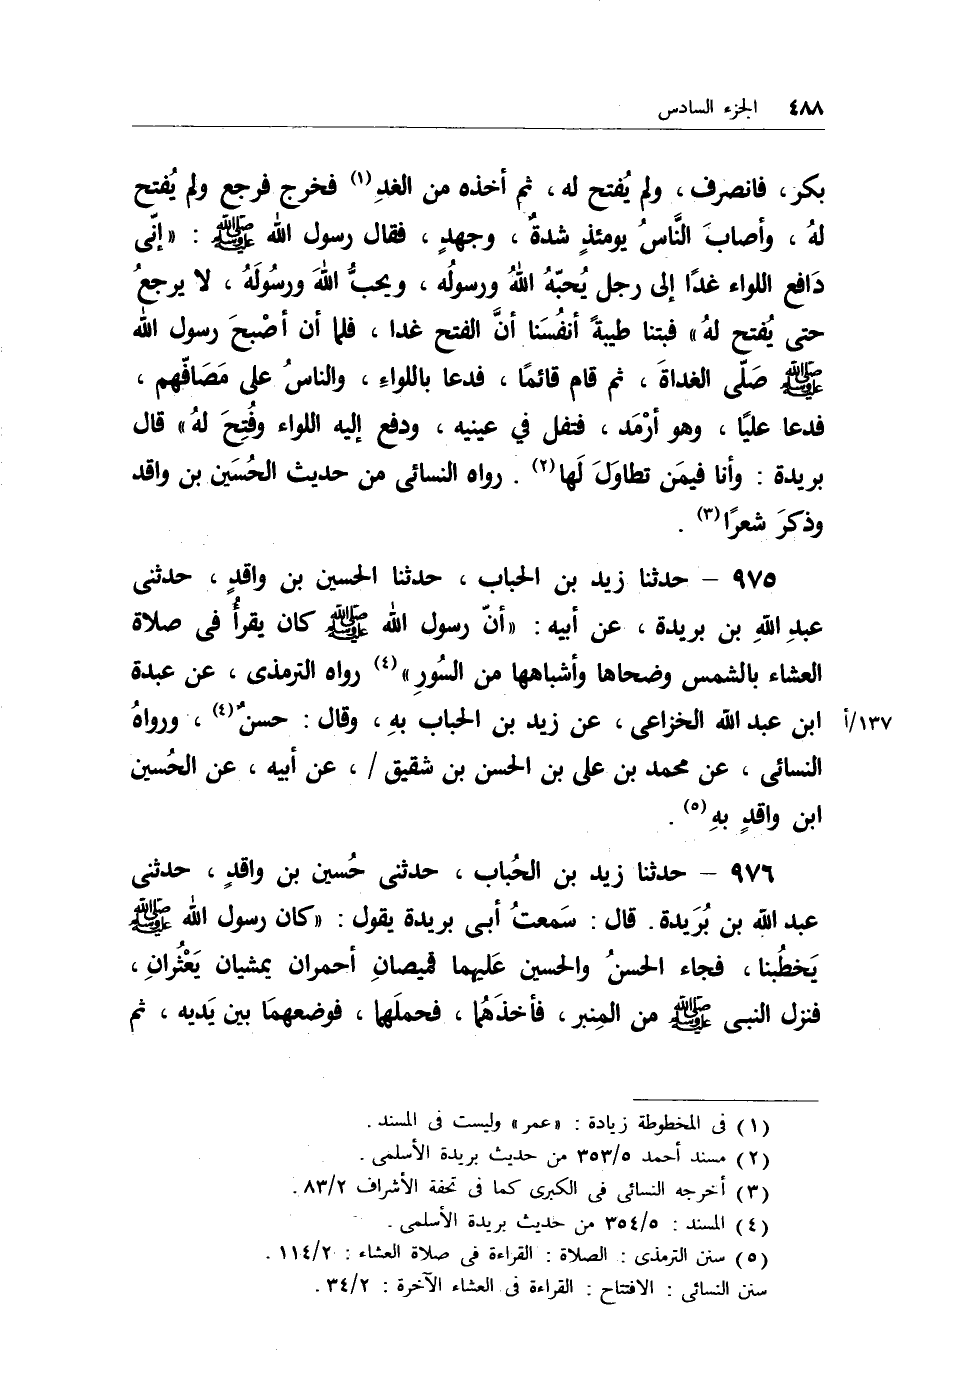 ٤٨٨ الجزء السادس
بكر ، فانصرف ، ولم يُفتح له ، ثم أخذه من الغدِ(١) فخرج فرجع ولم يُفتح
لهُ ، وأصابَ النَّاسُ يومئذٍ شدةٌ ، وجهدٍ ، فقال رسول الله ﷺ : «إنّى
دَافع اللواء غدًا إلى رجل يُحبّهُ اللهُ ورسولُه ، ويحبُّ اللهَ ورسُولَهُ ، لا يرجعُ
حتى يُفتح لهُ» فبتنا طيبةً أنفُسَنا أنَّ الفتح غدا ، فلما أن أصْبحَ رسول الله
ﷺ صَلّى الغداةَ ، ثم قام قائمًا ، فدعا باللواءِ ، والناسُ على مَصَافّهم ،
فدعا عليًا ، وهو أرْمَد ، فتفل في عينيه ، ودفع إليه اللواء وفُتِحَ لهُ» قال
بريدة : وأنا فيمَن تطاوَلَ لَها(٢) . رواه النسائى من حديث الحُسَين بن واقد
وذكرَ شعرًا(٣) .
٩٧٥ – حدثنا زيد بن الحباب ، حدثنا الحسين بن واقدٍ ، حدثنى
عبدِ اللهِ بن بريدة ، عن أبيه : «أنّ رسول الله ﷺ كان يقرأُ فى صلاة
العشاء بالشمس وضحاها وأشباهها من السُورِ»(٤) رواه الترمذى ، عن عبدة
ابن عبد الله الخزاعى ، عن زيد بن الحباب بهِ ، وقال : حسنٌ(٤) ، ورواهُ ١٣٧/أ
النسائى ، عن محمد بن على بن الحسن بن شقيق / ، عن أبيه ، عن الحُسين
ابن واقدٍ بهِ(٥) .
٩٧٦ – حدثنا زيد بن الحُباب ، حدثنى حُسين بن واقدٍ ، حدثنى
عبد الله بن بُرَيدة . قال : سَمعتُ أبى بريدة يقول : «كان رسول الله ﷺ
يَخطُبنا ، فجاء الحسنُ والحسين عَليهما قميصانِ أحمران يمشيان يَعْثُرانِ ،
فنزل النبى ﷺ من المِنبر ، فأخذَهُما ، فحملَهما ، فوضعهمَا بين يَديه ، ثم
(١) فى المخطوطة زيادة : «عمر» وليست فى المسند .
(٢) مسند أحمد ٣٥٣/٥ من حديث بريدة الأسلمى .
(٣) أخرجه النسائى فى الكبرى كما فى تحفة الأشراف ٨٣/٢ .
(٤) المسند : ٣٥٤/٥ من حديث بريدة الأسلمى .
(٥) سنن الترمذى : الصلاة : القراءة فى صلاة العشاء : ١١٤/٢ .
سنن النسائى : الافتتاح : القراءة فى العشاء الآخرة : ٣٤/٢ .